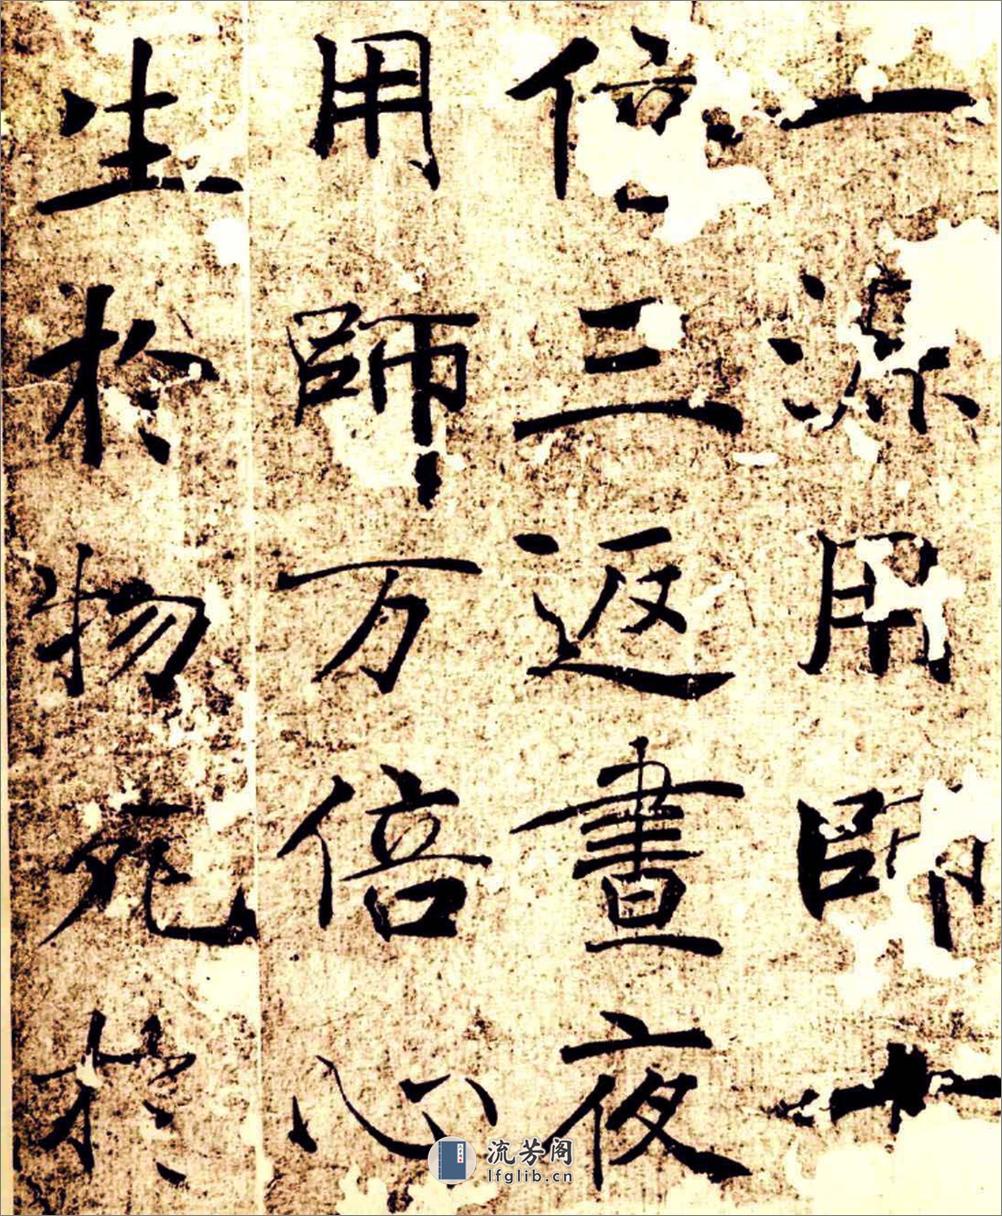 一源用師十
倍三返晝夜
用師万倍心
生於物死於
流芳阁
lfglib.cn